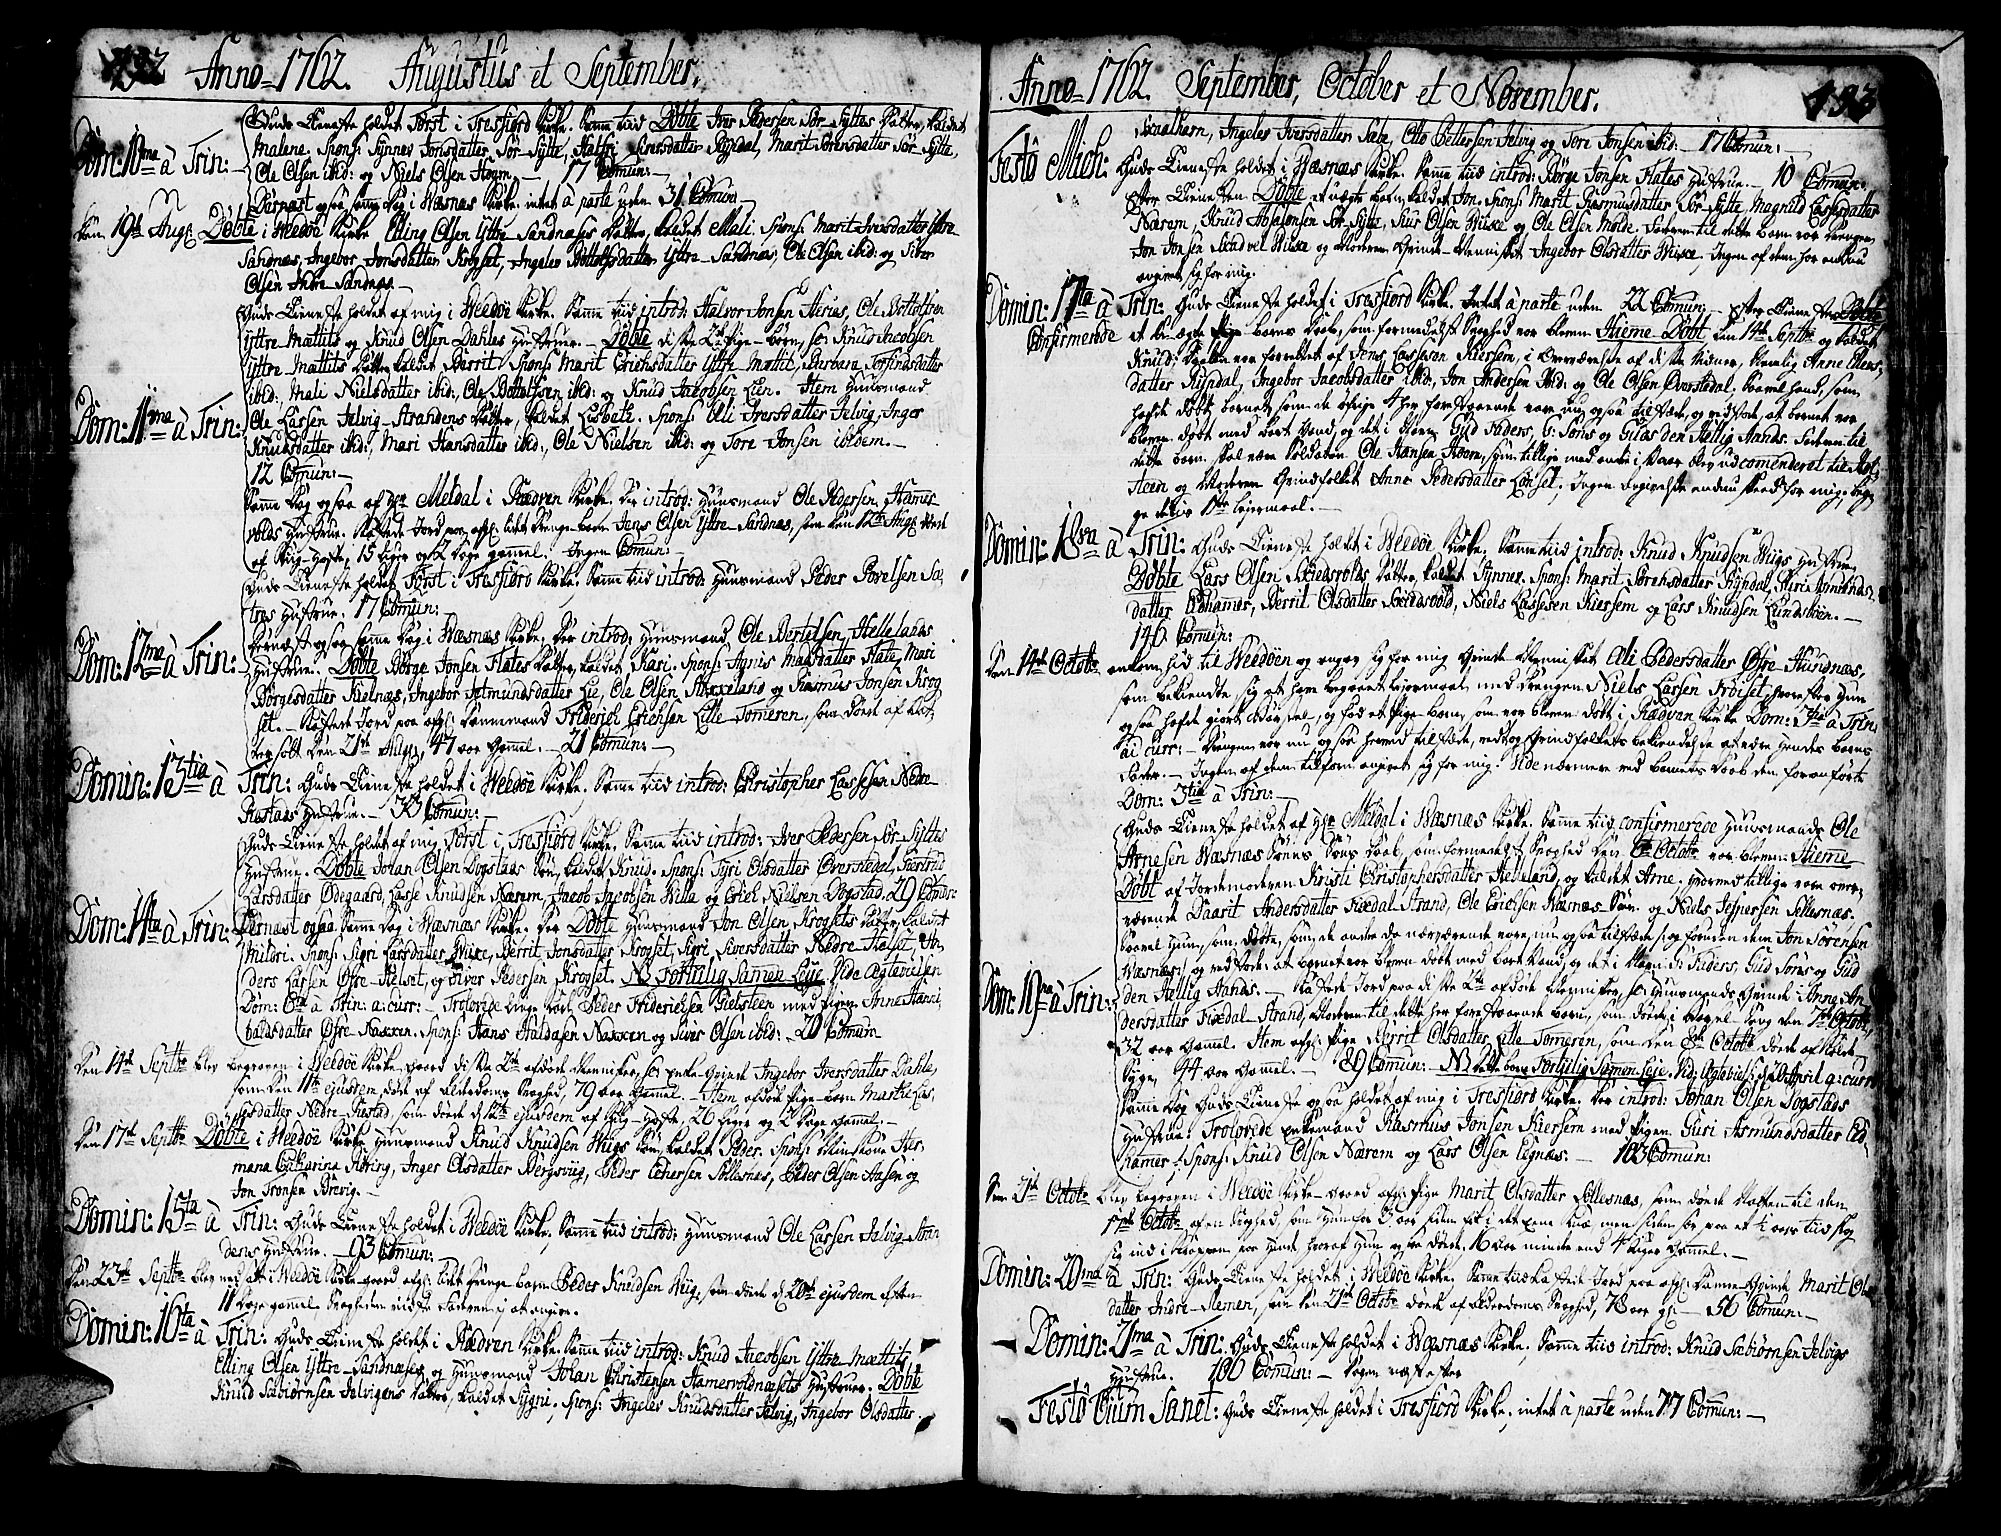 Anno 1762. Augustus et September.
Dom: 10ma à Trin: Guds Tieneste holdet Først i Tresfiord Kirke. Samme tiid Døbte Iver Pedersen Sør Syltes Datter, kaldet
Malene. Spons: Synnev Jonsdatter Sør-Sylte, Siversdatter Rypdal, Marit Sørensdatter Sør-Sylte,
Ole Olsen ibid: og Niels Olsen 17 Comun:
Dernæst ogsaa samme Dag i Wæsnæs Kirke intet à parte uden 31 Comun:
Den 19de Aug: Døbte i Weedøe Kirke Elling Olsen Yttre-Sandnæses Datter, kaldet Mali. Spons: Marit Iversdatter Yttre-
Sandnæs, Ingebor Jonsdatter Krogset, Ingelev Bottolfsdatter Yttre-Sandnæs, Ole Olsen ibid: og Siver
Olsen Indre Sandnæs
Guds Tieneste holdet af mig i Weedøe Kirke. Samme tiid introd: Halvor Jonsen Ole Bottolfsen
Yttre Mættits og Knud Olsen Dahles Hustruer. Døbte diste 2de Pige-børn, so: Knud Jacobsen
Yttre-Mættits Datter, kaldet Berrit. Spons: Marit Erichsdatter Yttre Mættit, Barbara Torfindsdatter
ibid:, Mali Nielsdatter ibid:, Ole Bottolfsen ibid: og Knud Jacobsen Lien. Item Huusmand
Dom: 11ma à Trin: Ole Larsen Jelvig-Strandens Datter, kaldet Lisbete. Spons: Eli Iversdatter Jelvig, Inger
Knudsdatter ibid:, Mari Hansdatter ibid:, Ole Nielsen ibid: og Tore Jonsen ibidem.
12 Comun:
Samme Dag ogsaa af Hr Meldal i Rødven Kirke. Der introd: Huusmand Ole Pedersen, Hammer-
volds Hustrue. Kastede Jord paa afg: lidet Drenge-barn Jens Olsen Yttre-Sandnæs, som den 12te Aug: døde
af Kiig-Hoste, 15 Uger og 2 Dage gammel. Ingen Comun:
Guds Tieneste holdet Først i Tresfiord Kirke. Samme tiid introd: Huusmand Peder Povelsen Sæ-
tres Hustrue. 17 Comun:
Dom: 12ma à Trin: Dernæst ogsaa samme Dag i Wæsnæs Kirke. Der introd: Huusmand Ole Bertelsen, Hellelands
Hustrue. Døbte Børge Jonsen Flates Datter, kaldet Kari. Spons: Agnis Madsdatter Flate, Mari
Børgesdatter Kielnæs, Ingebor Asmundsdatter Lie, Ole Olsen og Rasmus Jonsen Krog
set. Kastet Jord paa afg: Dannemand Friderich Erichsen Lille-Tomeren, som døde af
den 21de Aug:, 47 aar Gammel. 21 Comun:
Domin: 13tia à Trin: Guds Tieneste holdet i Weedøe Kirke. Samme tiid introd: Christopher Lassesen Nedre
Hustrue. 33 Comun:
Guds Tieneste holdet af mig Først i Tresfiord Kirke. Samme tiid introd: Iver Pedersen Sør-Syltes
Hustrue. Døbte Johan Olsen Dogstads Søn, kaldet Knud. Spons: Syri Olsdatter Øverstedal, Giertrud
Larsdatter Ødegaard, Lasse Knudsen Nærem, Jacob Jacobsen Villa og Erich Nielsen Dogstad. 29 Comun:
Dom: 14ta à Trin: Dernæst ogsaa samme Dag i Wæsnæs Kirke. Der Døbte Huusmand Jon Olsen, Krogsets Datter, kaldet
Milöri. Spons: Sigri Larsdatter Berrit Jonsdatter Krogset, Sigri Siversdatter Nedre-Helset, An-
ders Larsen Øvre-Helset, og Siver Pedersen Krogset. NB Fortiilig Samen Leje, Vide Ægtevielsen
Dom: 6ta à Trin: a: curr: Trolovede Peder Fridericksen Gielsteen med Pigen Anne Hanni-
baldsdatter Øvre-Naxxen. Spons: Hans Haldasen Naxxen og Siver Olsen ibid: 20 Comun
Den 14de Septbr blev begraven i Weedøe Kirke-Gaard diste 2de afdøde Mennisker, so: Enke-Qvinde Ingebor Iversdatter Dahle,
som den 11te ejusdem døde af Alderdoms Svaghed, 79 aar Gammel. Item afdøde Pige-barn Marte Las-
sesdatter Nedre-Kiestad, som døde d: 12te ejusdem af Kiig-Hoste, 26 Uger og 2 Dage Gammel.
Den 17de Septbr Døbte i Weedøe Kirke Huusmand Knud Knudsen Huigs Søn, kaldet Peder. Spons: Min Kone Her-
mana Catharina Røring, Inger Olsdatter Bergsvig, Peder Pettersen Sollesnæs, Peder Olsen Aasen og
Jon Tronsen Brevig.
Domin: 15ta à Trin: Guds Tieneste holdet i Weedøe Kirke. Samme tiid introd: Huusmand Ole Larsen Jelvig-Stran-
dens Hustrue. 93 Comun:
Den 23de Septbr blev nedsat i Weedøe Kirke-gaard afg: lidet Drenge-barn Peder Knudsen Huig, som døde d: 20de ejusdem efter
11 Dage gammel, Svagheden vidste Faderen ej at angive.
Domin: 16ta à Trin: Guds Tieneste holdet i Rødven Kirke. Samme tiid introd: Knud Jacobsen Yttre Mættits
Elling Olsen Yttre-Sandnæses og Huusmand Johan Christensen Hamervoldnæsets Hustruer. Døbte
Knud Sæbiørnsen Jelvigens Datter, kaldet Sygni. Spons: Ingelev Knudsdatter Jelvig, Ingebor Olsdatter
Anno 1762. September, October et November. 193
Skaalhavn, Ingelev Iversdatter Sæte, Otto Pettersen Jelvig og Tore Jonsen ibid: 176 Comun:
Festô Mich: Guds Tieneste holdet i Wæsnæs Kirke. Samme tiid introd: Børge Jonsen Flates Hustrue. 10 Comun:
Efter Tienesten Døbte et uægte barn, kaldet Jon. Spons: Marit Rasmusdatter Sør-Sylte, Magnild Lassesdatter
Nærem, Knud Aslaksen Sør-Sylte, Siur Olsen og Ole Olsen Molde. Faderen til dette barn var Drengen
Jon Jonsen og Moderen Qvinde-Mennisket Ingebor Olsdatter Ingen af dem har endnu
angivet sig for mig.
Domin: 17ta à Trin: Guds Tieneste holdet i Tresfiord Kirke. Intet à parte uden 22 Comun. Efter Tienesten
Confirmerede et barns Daab, som formedelst Svaghed var bleven Hieme Døbt den 14de Septbr og kaldet
Knud; Daaben var forrettet af Jens Lassesen Kiersem, i Overværelse af diste Vidner, nemlig Anne Ellends-
datter Rypdal, Ingebor Jacobsdatter ibid:, Jon Andersen ibid: og Ole Olsen Øverstedal. Saavel hand, som
hafde døbt barnet, som de øvrige 4 her forestaaende vare nu ogsaa tilstæde, og vidstode, at barnet var
bleven døbt med bart Vand, og det i Navn Gud Faders, G: Søns og Guds den Hellig Aands. Faderen til
dette barn skal være Soldaten Ole Hansen som tillige med andre i Vaar blev udcomenderet til Hol-
steen og Moderen Qvindfolket Anne Pedersdatter Lønset. Ingen Angivelse endnu skeed for mig; beg-
ge deris 1ste Leiermaal.
Domin: 18va à Trin: Guds Tieneste holdet i Weedøe Kirke. Samme tiid introd: Knud Knudsen Huigs Hustrue.
Døbte Lars Olsen Datter, kaldet Synnev. Spons: Marit Sørensdatter Rypdal, Siri Asmunds-
datter Eidhamer, Berrit Olsdatter Niels Lassesen Kiersem og Lars Knudsen Lundskoven.
146 Comun:
Den 14de Octobr ankom hid til Weedøen og angav sig for mig Qvinde-Mennisket Ali Pedersdatter Øvre-Hundnæs,
som bekiendte sig at have begaaet Leiermaal med Drengen Niels Larsen Frøiset, hvorefter Hun
ogsaa hafde giort Barsel, og fød et Pige-barn, som var bleven døbt i Rødven Kirke Dom: 3tia à Trin:
a: curr: Drengen var nu ogsaa herved tilstæde, vedtog Qvindfolkets bekiendelse at være hendes barns
Fader. Ingen af dem tilforn angivet sig for mig. Vide nærmere ved barnets Daab den foranførte
Dom: 3tia à Trin:
Guds Tieneste holdet af Hr Meldal i Wæsnæs Kirke. Samme tiid confirmerede Huusmands Ole
Arnesen Wæsnæs Søns Daab, som formedelst Svaghed den 6te Octobr var bleven Hieme
Døbt af Jordemoderen Kristi Christophersdatter Helleland, og kaldet Arne. Hvorved tillige vare over-
værende Daarit Andersdatter Fixdal-Strand, Ole Erichsen Wæsnæs-Søn og Niels Jespersen Sollesnæs.
Saavel Hun, som døbte, som de andre da nærværende vare nu ogsaa tilstæde, og foruden dem Jon Sørensen
Wæsnæs, og vedstode: at barnet var bleven døbt med bart Vand, og det i Navn G: Faders, Gud Søns og Gud
Dom: 19na à Trin: den Hellig Aands. Kastede Jord paa diste 2de afdøde Mennisker, so: Huusmands Qvinde Anne An-
dersdatter Fixdal-Strand, Moderen til dette her forestaaende barn, som døde i Barsel-Seng den 7de Octobr
32 aar Gammel. Item afg: Pige Berrit Olsdatter Lille-Tomeren, som den 8de Octobr døde af Kolde-
Syge, 44 aar Gammel. 89 Comun: NB dette barn Fortiilig Samen Leje, Vid: Ægteviels: d: 26 April a: curr:
Samme Dag Guds Tieneste ogsaa holdet af mig i Tresfiord Kirke. Der introd: Johan Olsen Dogstads
Hustrue. Trolovede Enkemand Rasmus Jonsen Kiersem med Pigen Guri Asmundsdatter Eid-
hamer. Spons: Knud Olsen Nærem og Lars Olsen Eignæs. 103 Comun:
Den 21de Octobr blev begraven i Weedøe Kirke-Gaard afg: Pige Marit Olsdatter Sollesnæs, som døde Natten til den
17de Octobr af en Svaghed, som Hun for 3 aar siden fik i det eene Knæ, men siden for paa et ½ aars tiid slog
sig ind i Kroppen paa Hende, hvoraf Hun ogsaa døde, 16 aar mindre end 4 Uger Gammel.
Domin: 20ma à Trin: Guds Tieneste holdet i Weedøe Kirke. Samme tiid Kastede Jord paa afg: Danne-Qvinde Marit Ols-
datter Indre-Nemen, som den 21de Octobr døde af Alderdoms Svaghed, 78 aar gl: 56 Comun:
Domin: 21ma à Trin: Guds Tieneste holdet i Wæsnæs Kirke. Samme tiid introd: Knud Sæbiørnsen Jelvigs
Hustrue. 180 Comun: Dagen næst efter
Festô Oium Sanct: Guds Tieneste holdet i Tresfiord Kirke, intet à parte uden 77 Comun: